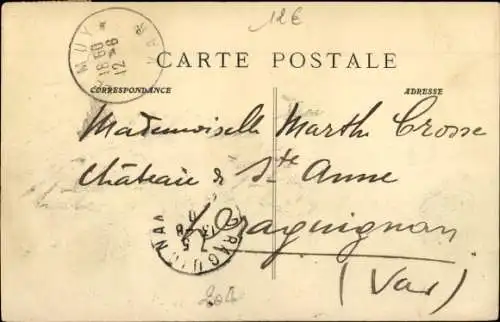 12€
MUY
VAR
18 50
12 - 8
CARTE POSTALE
CORRESPONDANCE
ADRESSE
Mademoiselle Marthe Crosse
Château de Ste Anne
Draguignan
(Var)
DRAGUIGNAN
7 5
13 8